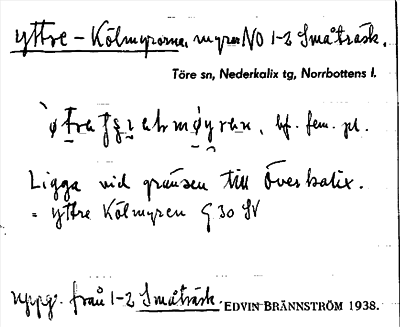 Yttre-Kölmyrorna, myrar NO 1-2 Småträsk.
Töre sn, Nederkalix tg, Norrbottens l.
bf. fem. pl.
Ligga vid gränsen till Överkalix.
= Yttre Kölmyren G 30 SV
uppg. från 1-2 Småträsk. EDVIN BRÄNNSTRÖM 1938.